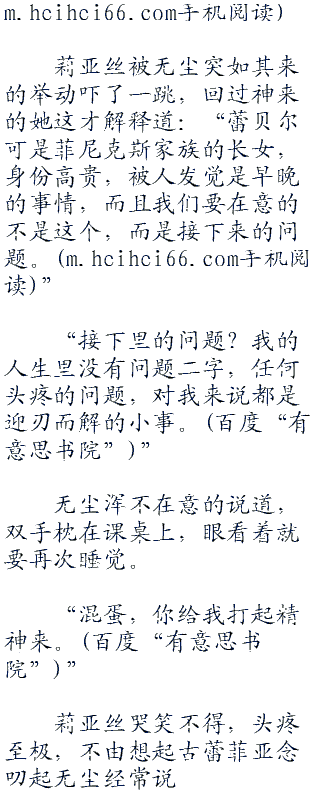 m.hcihci66.com手机阅读)
莉亚丝被无尘突如其来
的举动吓了一跳，回过神来
的她这才解释道：“蕾贝尔
可是菲尼克斯家族的长女，
身份高贵，被人发觉是早晚
的事情，而且我们要在意的
不是这个，而是接下来的问
题。(m.hcihci66.com手机阅
读)”
“接下里的问题？我的
人生里没有问题二字，任何
头疼的问题，对我来说都是
迎刃而解的小事。(百度“有
意思书院”)”
无尘浑不在意的说道，
双手枕在课桌上，眼看着就
要再次睡觉。
“混蛋，你给我打起精
神来。(百度“有意思书
院”)”
莉亚丝哭笑不得，头疼
至极，不由想起古蕾菲亚念
叨起无尘经常说